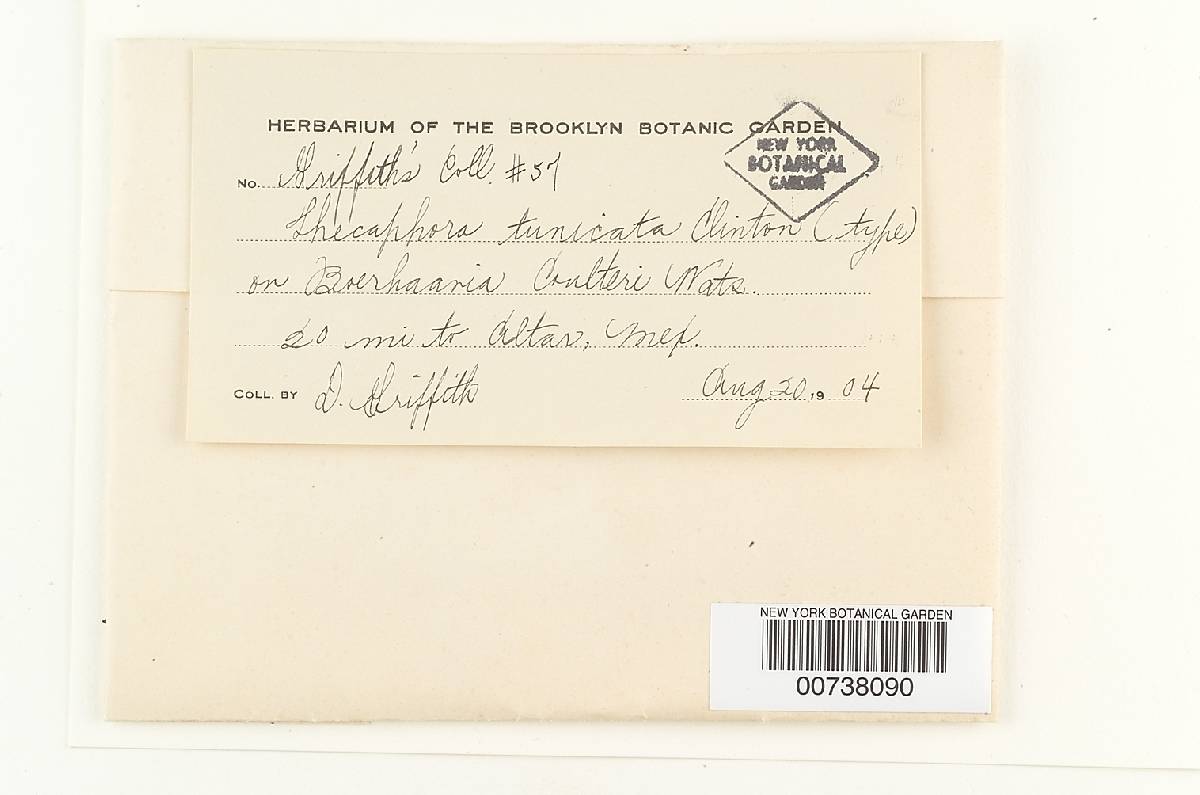 HERBARIUM OF THE BROOKLYN BOTANIC GARDEN
NEW YORK
BOTANICAL
GARDEN
No. Griffith's Coll. #57
Thecaphora tunicata Clinton (type)
on Boerhaavia Coulteri Wats.
20 mi to Altar, Mex.
COLL. BY D. Griffith Aug. 20, 19 04
NEW YORK BOTANICAL GARDEN
00738090